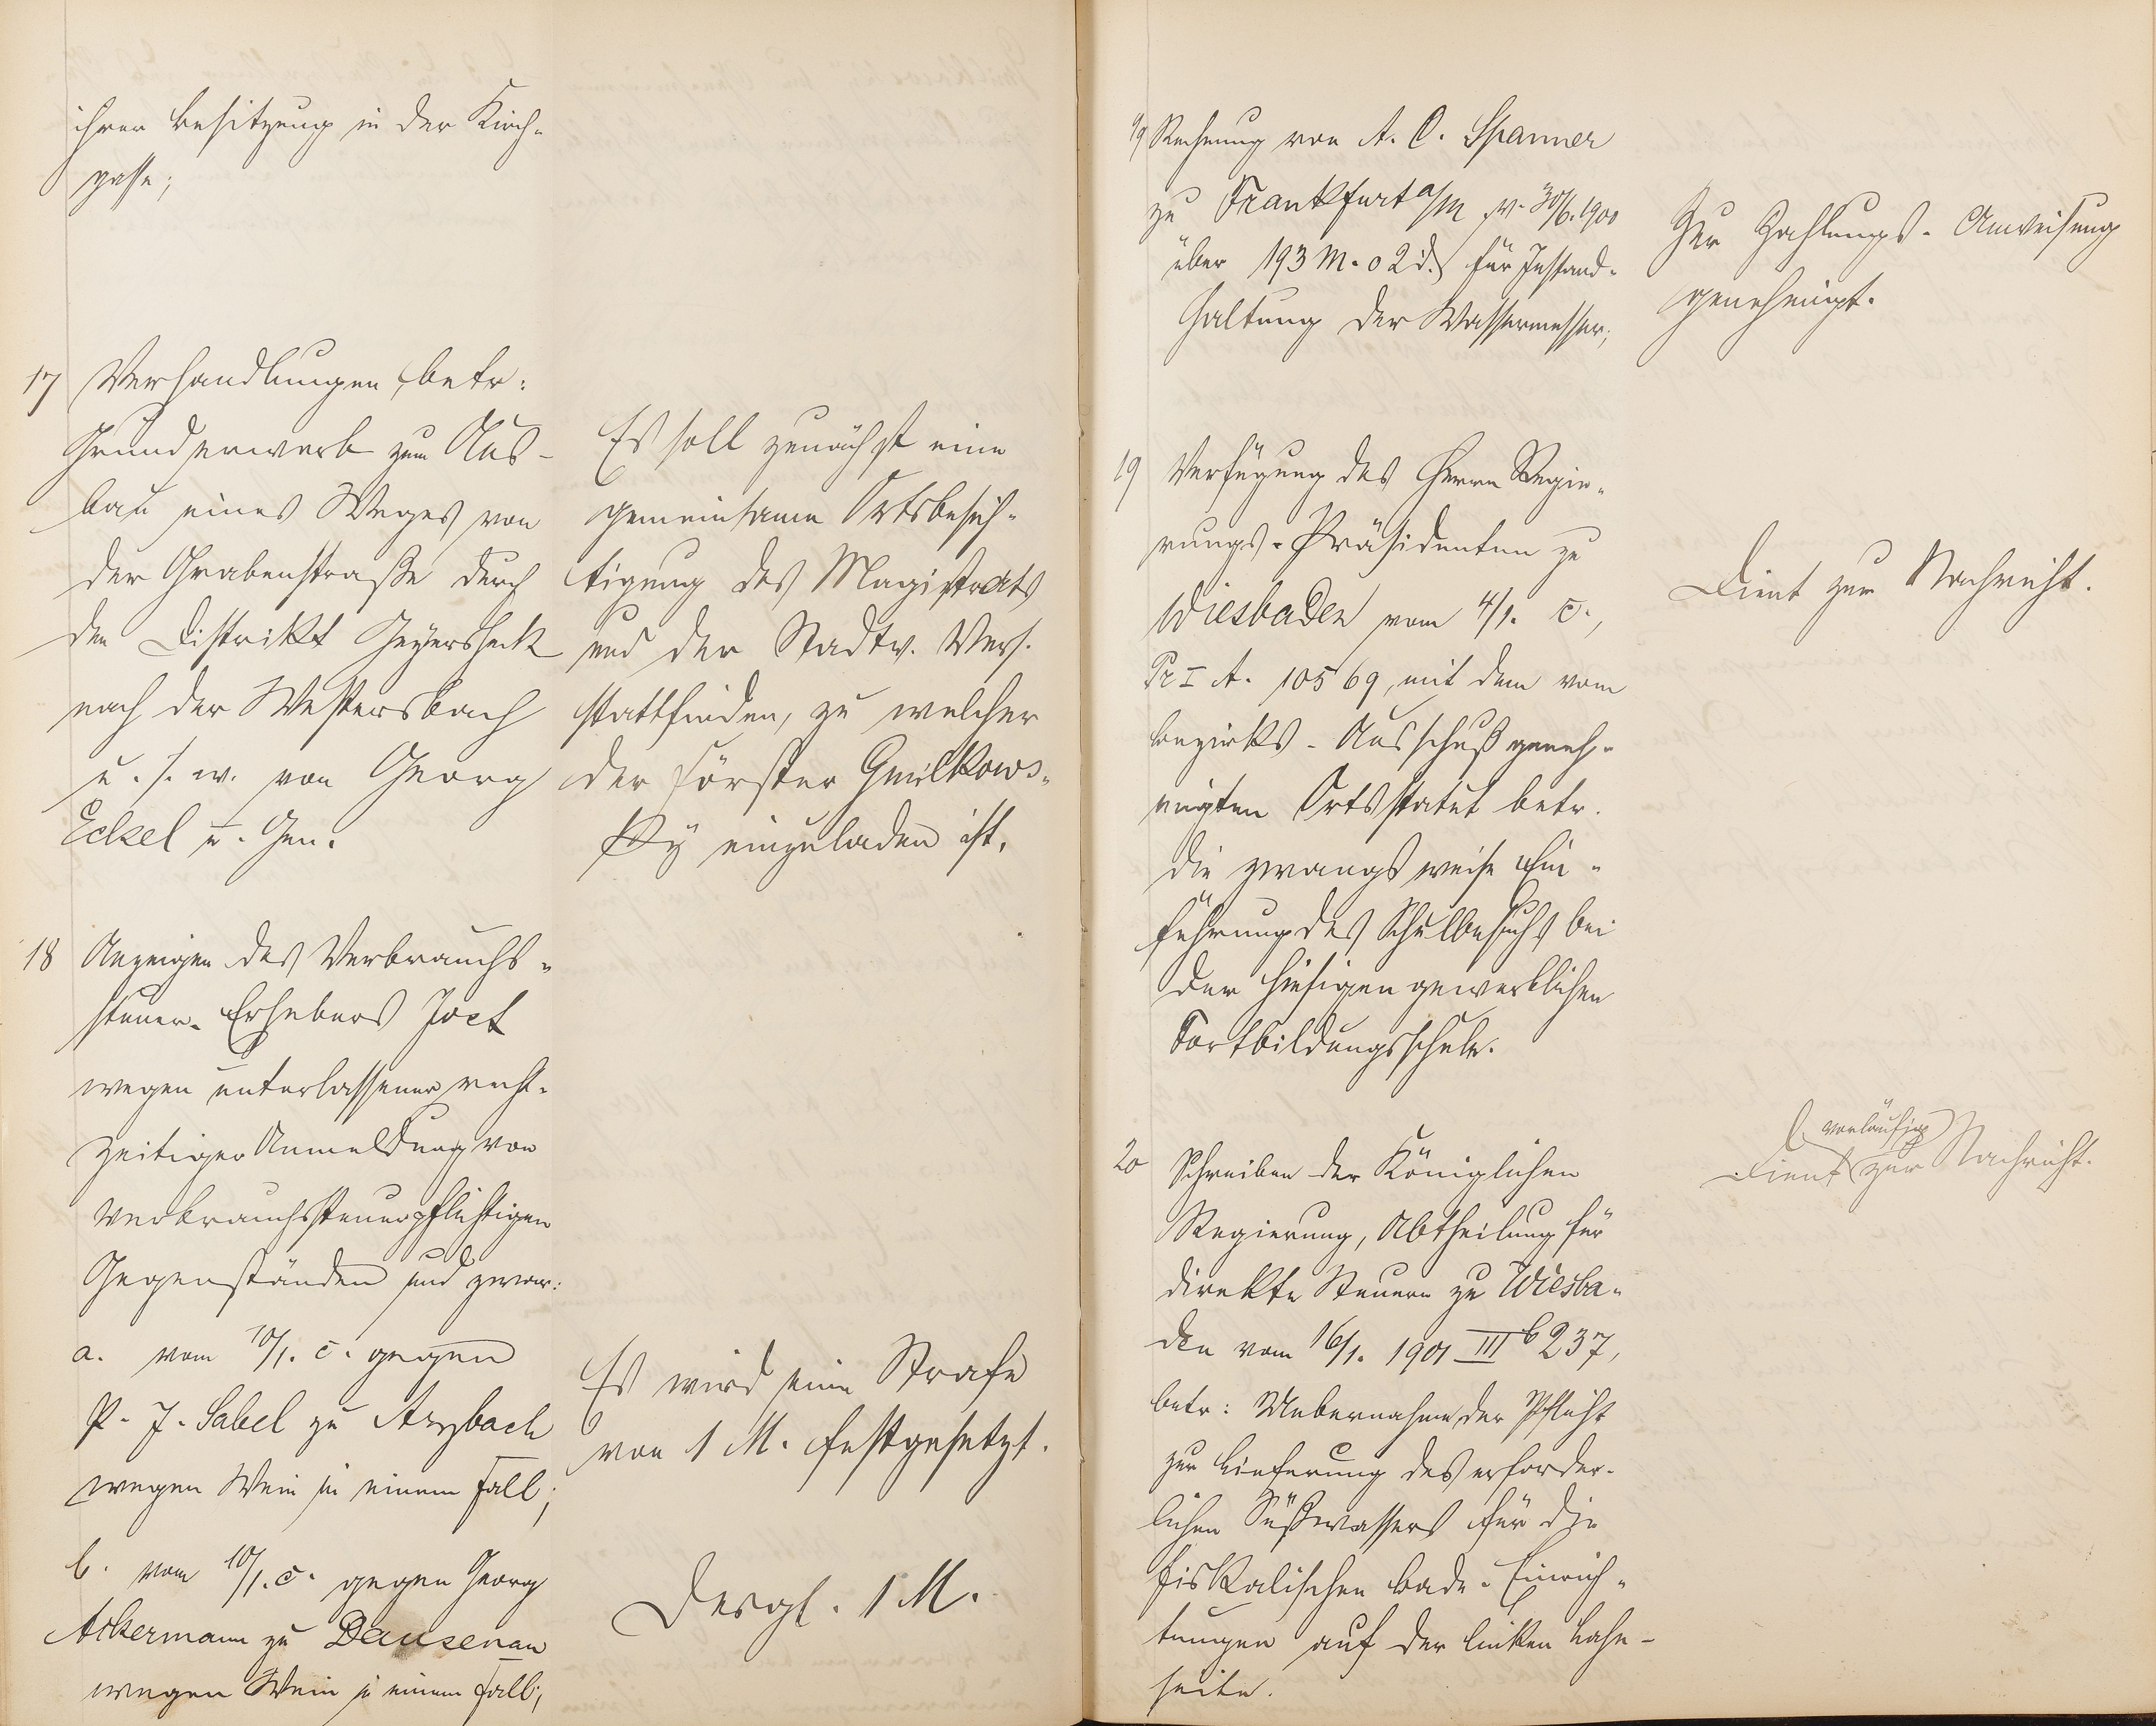 ihrer Besitzung in der Kirch-
gasse;
17 Verhandlungen, betr:
Grunderwerb zum Aus-
bau eines Weges von
der Grabenstraße durch
den Distrikt Geyersheck
nach der Westersbach
u. s. w. von Georg
Eckel u. Gen.
Es soll zunächst eine
gemeinsame Ortsbesich-
tigung des Magistrats
und der Stadtv. Vers.
stattfinden, zu welcher
der Förster Gmilkows-
ky einzuladen ist.
18 Anzeigen des Verbrauchs-
steuer-Erhebers Jost
wegen unterlassener recht-
zeitiger Anmeldung von
verbrauchssteuerpflichtigen
Gegenständen und zwar:
a. vom 10/1. c. gegen
P. J. Sabel zu Arzbach
wegen Wein in einem Fall;
Es wird eine Strafe
von 1 M. festgesetzt.
b. vom 10/1. c. gegen Georg
Ackermann zu Dausenau
wegen Wein in einem Fall;
Desgl. 1 M.
Rechnung von A. C. Spanner
zu Frankfurt a/M v. 30/6. 1900
über 193 M. 02 d. für Instand-
haltung der Wassermesser;
Zur Zahlungs-Anweisung
genehmigt.
19 Verfügung des Herrn Regie-
rungs-Präsidenten zu
Wiesbaden vom 4/1. c.,
Pr I A. 10569, mit dem vom
Bezirks-Ausschuß geneh-
migten Ortsstatut betr.
die zwangsweise Ein-
führung des Schulbesuchs bei
der hiesigen gewerblichen
Fortbildungsschule.
Dient zur Nachricht.
20 Schreiben der Königlichen
Regierung, Abtheilung für
direkte Steuern zu Wiesba-
den vom 16/1. 1901 III b 237,
betr: Uebernahme der Pflicht
zur Lieferung des erforder-
lichen Süßwassers für die
fiskalischen Bade-Einrich-
tungen auf der linken Lahn-
seite.
vorläufig
Dient zur Nachricht.